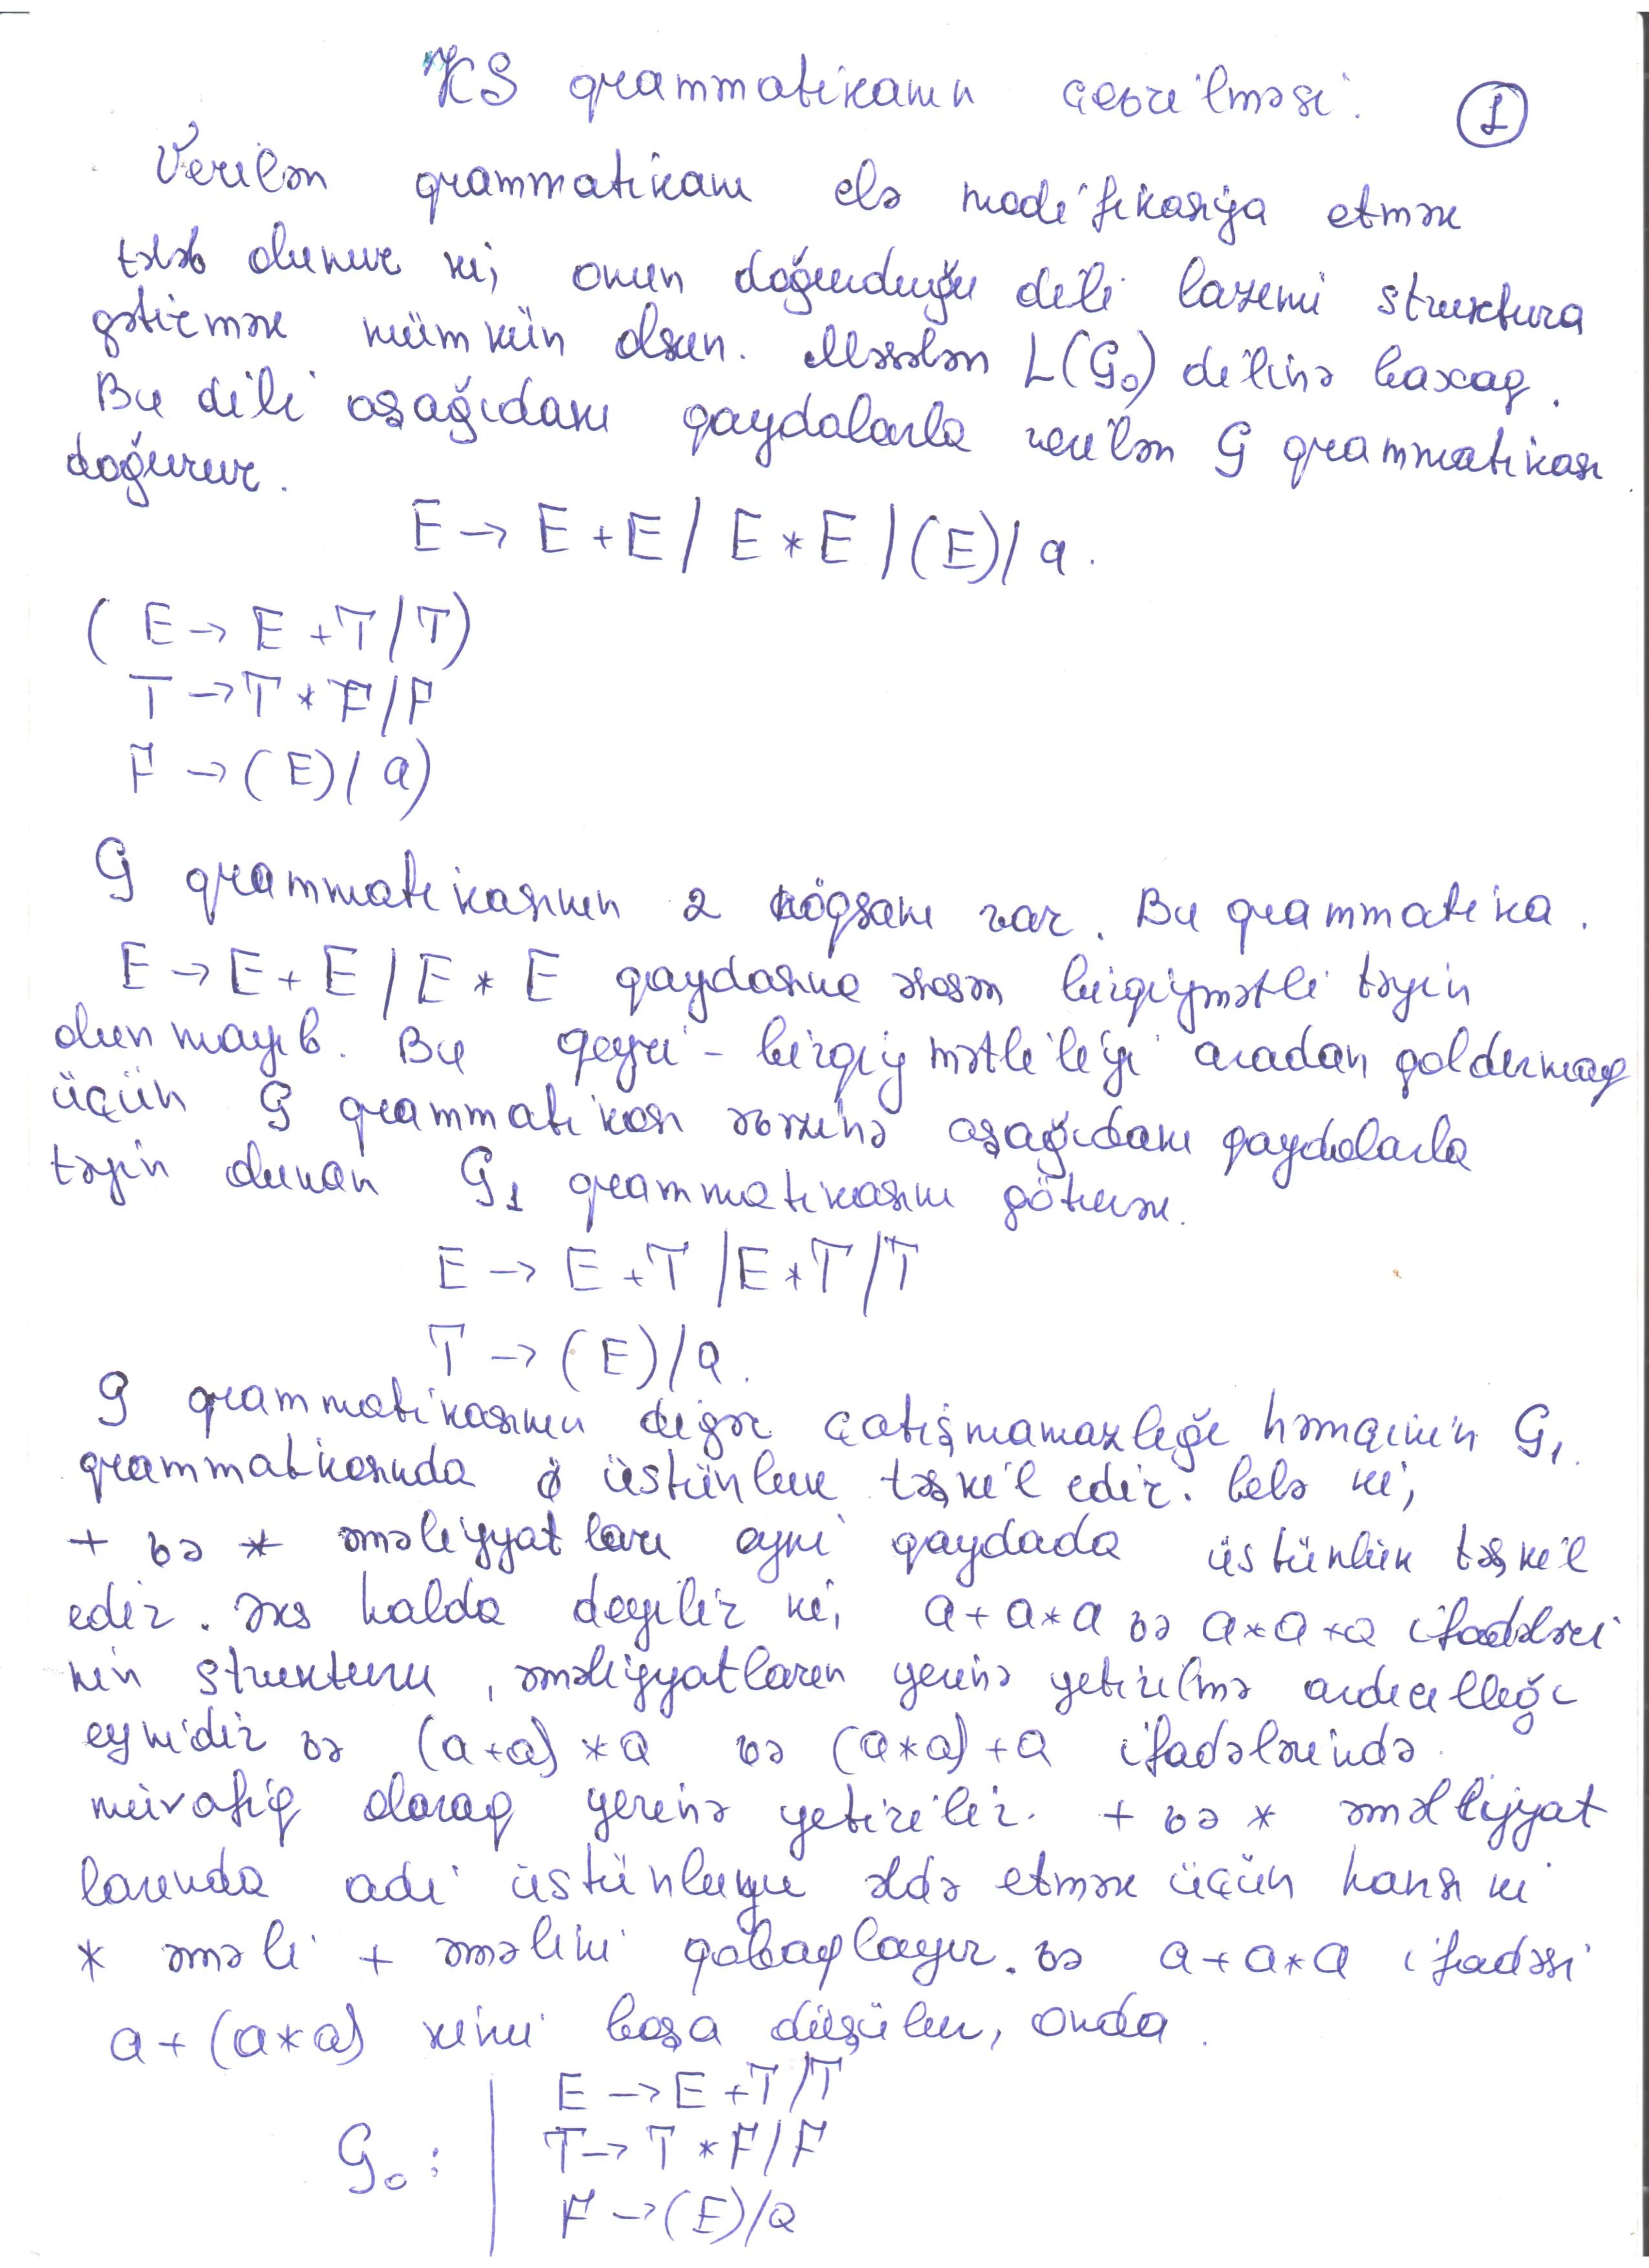 KS qrammatikanın çevrilməsi. 1
Verilən qrammatikanı elə modifikasiya etmək
tələb olunur ki, onun doğurduğu dili lazımi struktura
gətirmək mümkün olsun. Məsələn L(G₀) dilinə baxaq.
Bu dili aşağıdakı qaydalarla verilən G qrammatikası
doğurur.
E → E + E / E * E / (E) / a.
( E → E + T / T)
T → T * F / F
F → (E) / a)
G qrammatikasının 2 nöqsanı var. Bu qrammatika.
E → E + E / E * E qaydasına əsasən birqiymətli təyin
olunmayıb. Bu qeyri - birqiymətliliyi aradan qaldırmaq
üçün G qrammatikası əvəzinə aşağıdakı qaydalarla
təyin olunan G₁ qrammatikasını götürək.
E → E + T / E * T / T
T → (E) / a.
G qrammatikasının digər çatışmamazlığı həmçinin G₁.
qrammatikasında üstünlük təşkil edir. belə ki,
+ və * əməliyyatları eyni qaydada üstünlük təşkil
edir. əks halda deyilir ki, a + a * a və a * a + a ifadələri
nin strukturu, əməliyyatların yerinə yetirilmə ardıcıllığı
eynidir və (a + a) * a və (a * a) + a ifadələrində
müvafiq olaraq yerinə yetirilir. + və * əməliyyat
larında adi üstünlüyü əldə etmək üçün hansı ki
* əməli + əməlini qabaqlayır. və a + a * a ifadəsi
a + (a * a) kimi başa düşülür, onda.
E → E + T / T
G₀ : T → T * F / F
F → (E) / a